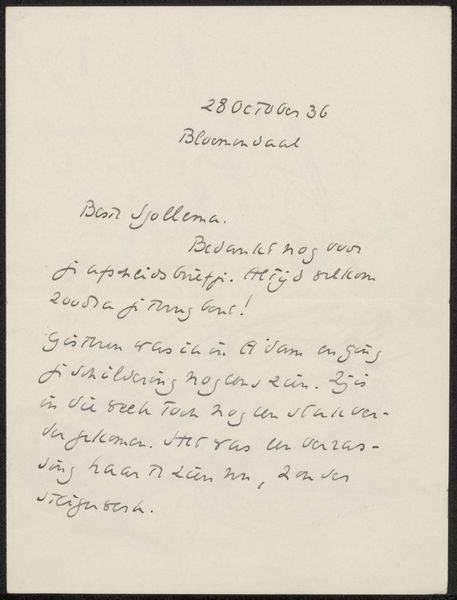 28 October 36
Bloemendaal
Beste Sjollema.
Bedankt nog voor
je afscheidsbriefje. Altijd welkom
zoodra je terug bent!
Gisteren was ik in A'dam en ging
je schildering nog eens zien. Zij is
in die week toch nog een stuk ver-
der gekomen. Het was een verras-
sing haar te zien nu, zonder
steigerwerk.